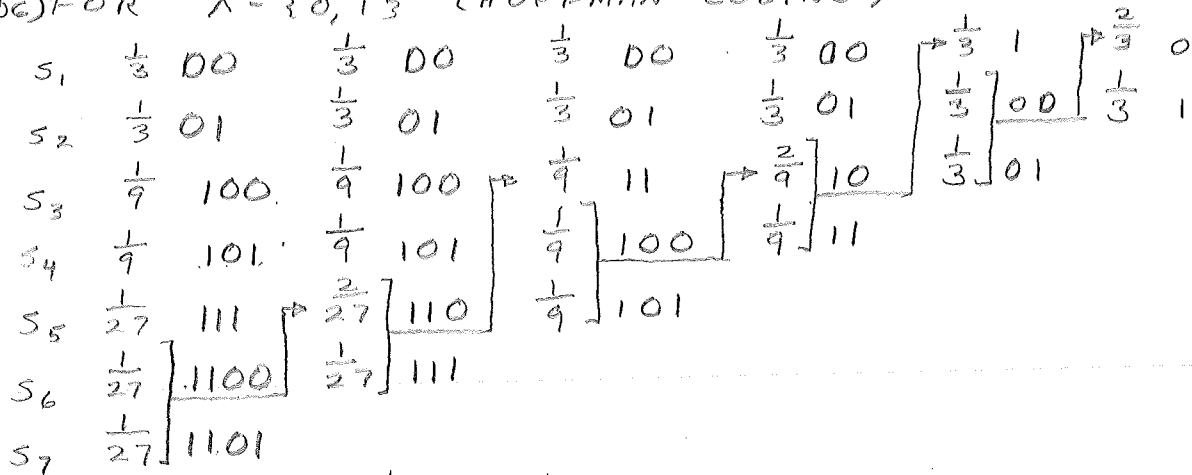 FOR X = {0,1} (HUFFMAN CODING)
s1 1/3 00 1/3 00 1/3 00 1/3 00 1/3 1 2/3 0
s2 1/3 01 1/3 01 1/3 01 1/3 01 1/3 00 1/3 1
s3 1/9 100. 1/9 100 1/9 11 2/9 10 1/3 01
s4 1/9 101. 1/9 101 1/9 100 1/9 11
s5 1/27 111 2/27 110 1/9 101
s6 1/27 1100 1/27 111
s7 1/27 1101